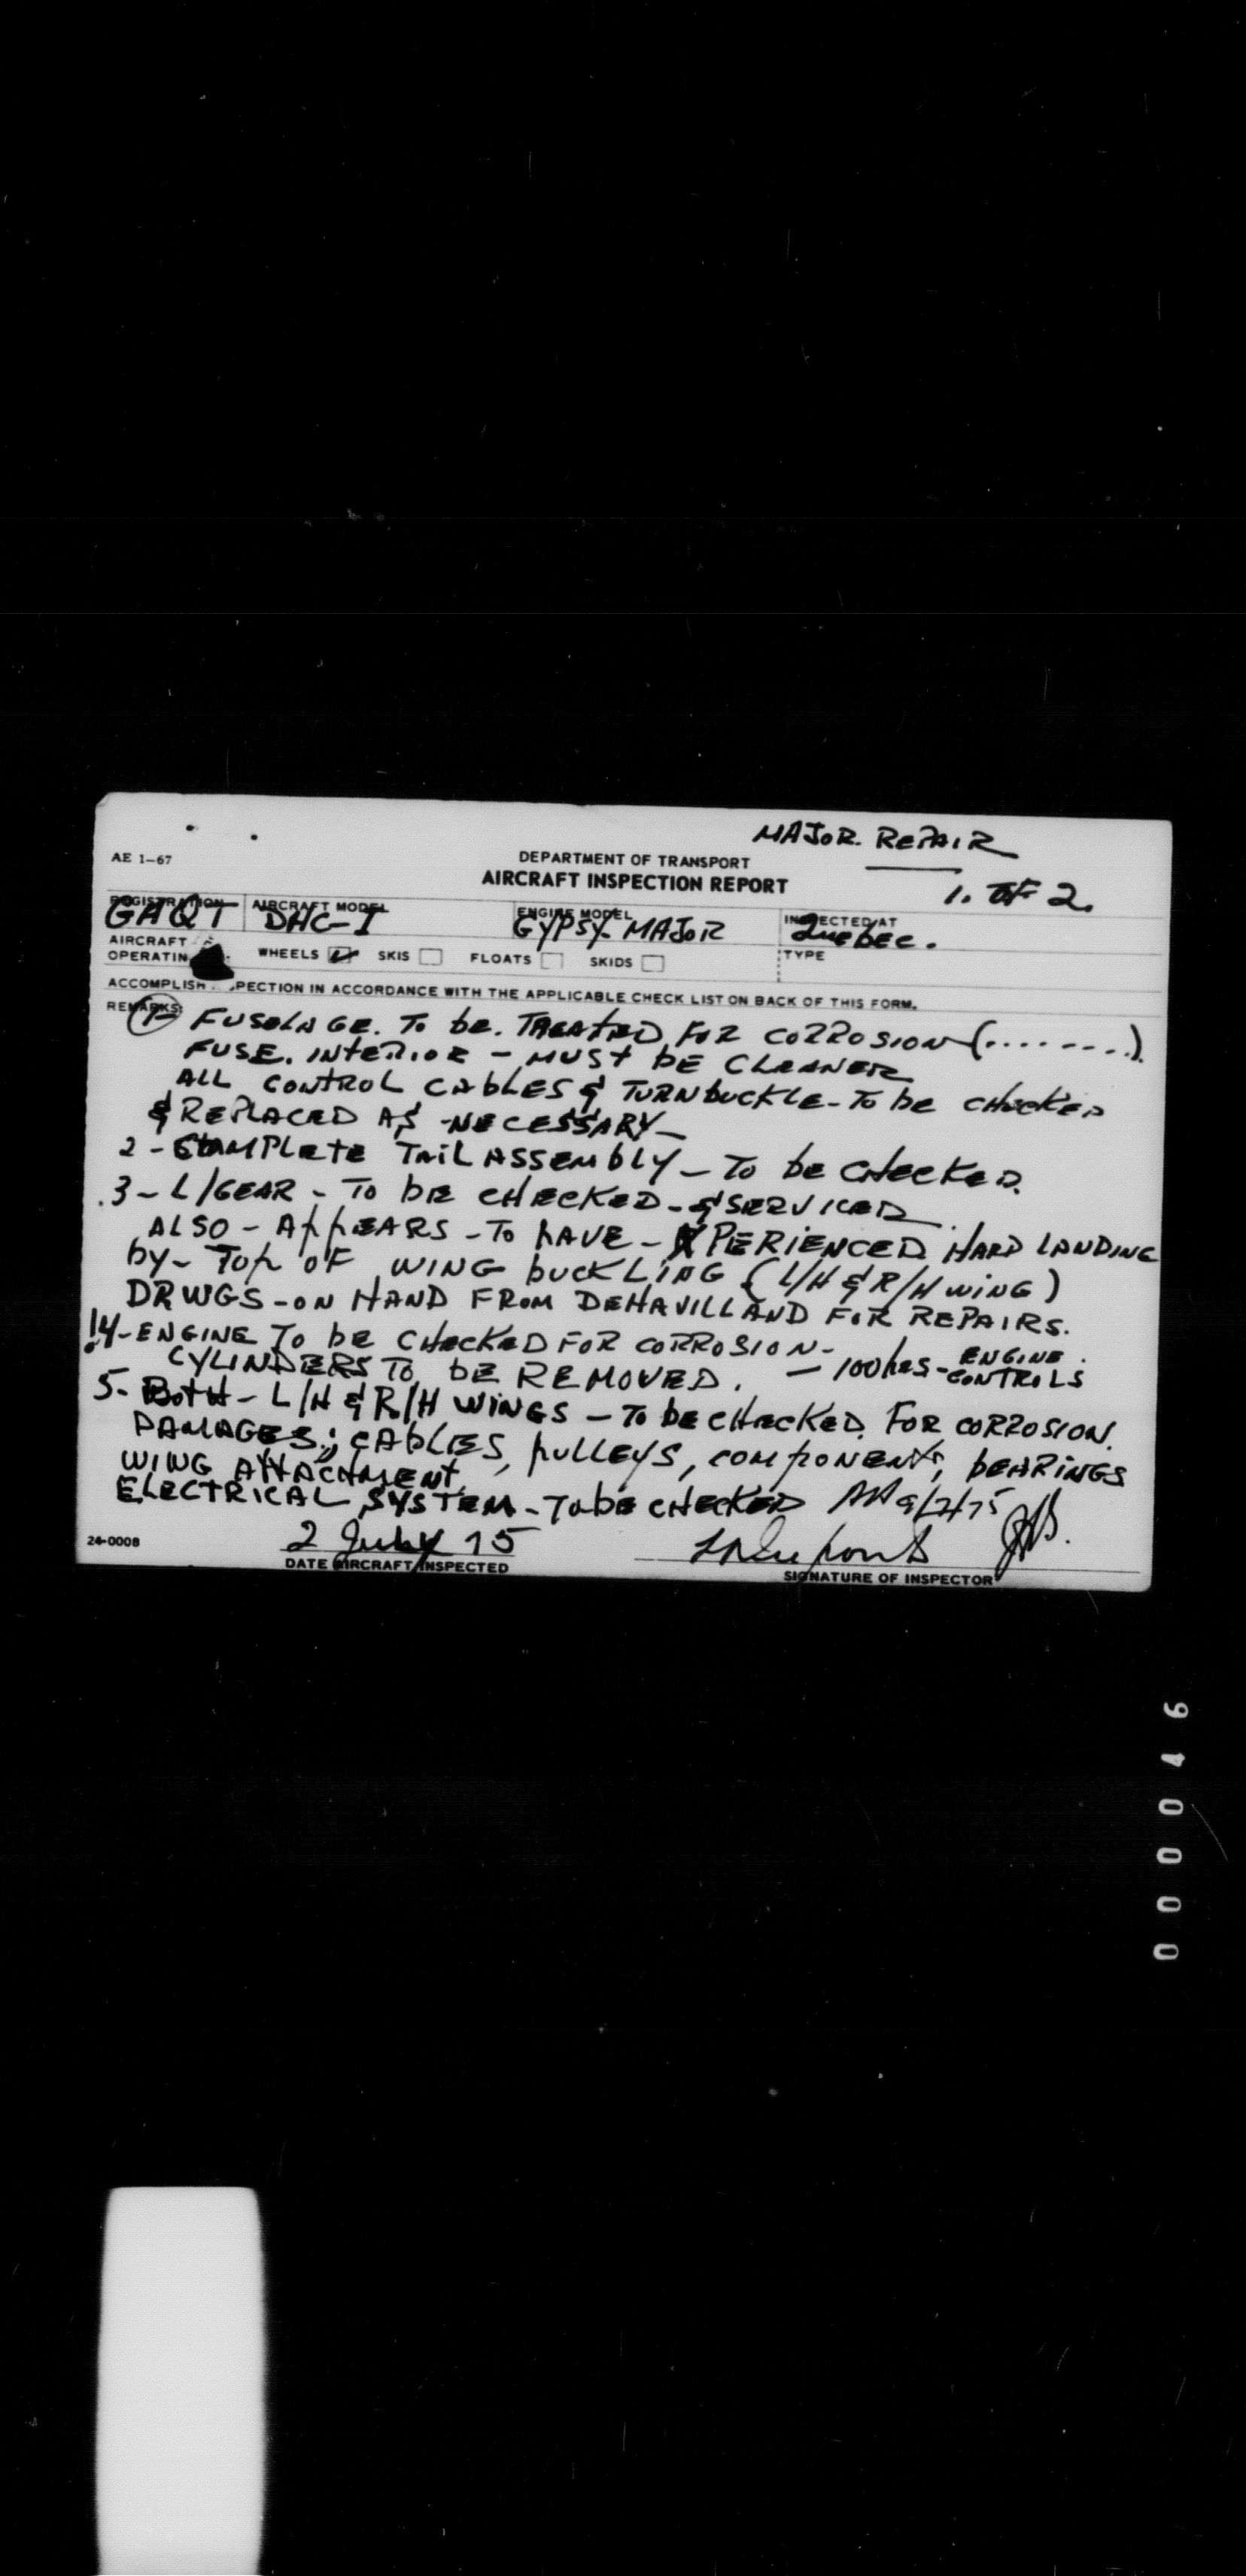 MAJOR. REPAIR
AE 1-67
DEPARTMENT OF TRANSPORT
AIRCRAFT INSPECTION REPORT
1. OF 2.
REGISTRATION AIRCRAFT MODEL ENGINE MODEL INSPECTED AT
GAQT DHC-1 GYPSY. MAJOR Quebec.
AIRCRAFT
OPERATIN WHEELS SKIS FLOATS SKIDS TYPE
ACCOMPLISH PECTION IN ACCORDANCE WITH THE APPLICABLE CHECK LIST ON BACK OF THIS FORM.
REMARKS:
1- FUSELAGE. TO be. TREATED FOR CORROSION (........).
FUSE. INTERIOR - MUST BE CLEANER
ALL CONTROL CABLES & TURNBUCKLE - TO be CHECKED
& REPLACED AS -NECESSARY-
2 - COMPLETE TAIL ASSEMBLY - TO be CHECKED.
.3 - L/GEAR - TO BE CHECKED - & SERVICED.
ALSO - AppEARS - TO hAVE - XPERIENCED HARD LANDING
by - TOP OF WING bUCKLING (L/H & R/H WING)
DRWGS - ON HAND FROM DEHAVILLAND FOR REPAIRS.
!4 - ENGINE TO bE CHECKED FOR CORROSION -
CYLINDERS TO bE REMOVED. - 100 hRS - ENGINE. CONTROLS
5- BOTH - L/H & R/H WINGS - TO bE CHECKED. FOR CORROSION.
DAMAGES.; CABLES, pULLEYS, COMPONENTS, bEARINGS
WING ATTACHMENT.
ELECTRICAL SYSTEM - TO bE CHECKED 9/7/75
24-0008
2 July 75
DATE AIRCRAFT INSPECTED
SIGNATURE OF INSPECTOR
000046